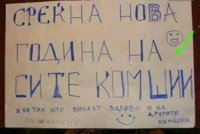 СРЕЌНА НОВА
ГОДИНА НА
СИТЕ КОМШИИ
И НА ТИЕ ШТО ВИКААТ ЗДРАВО И НА
ДРУГИТЕ
НАМЌОРИ